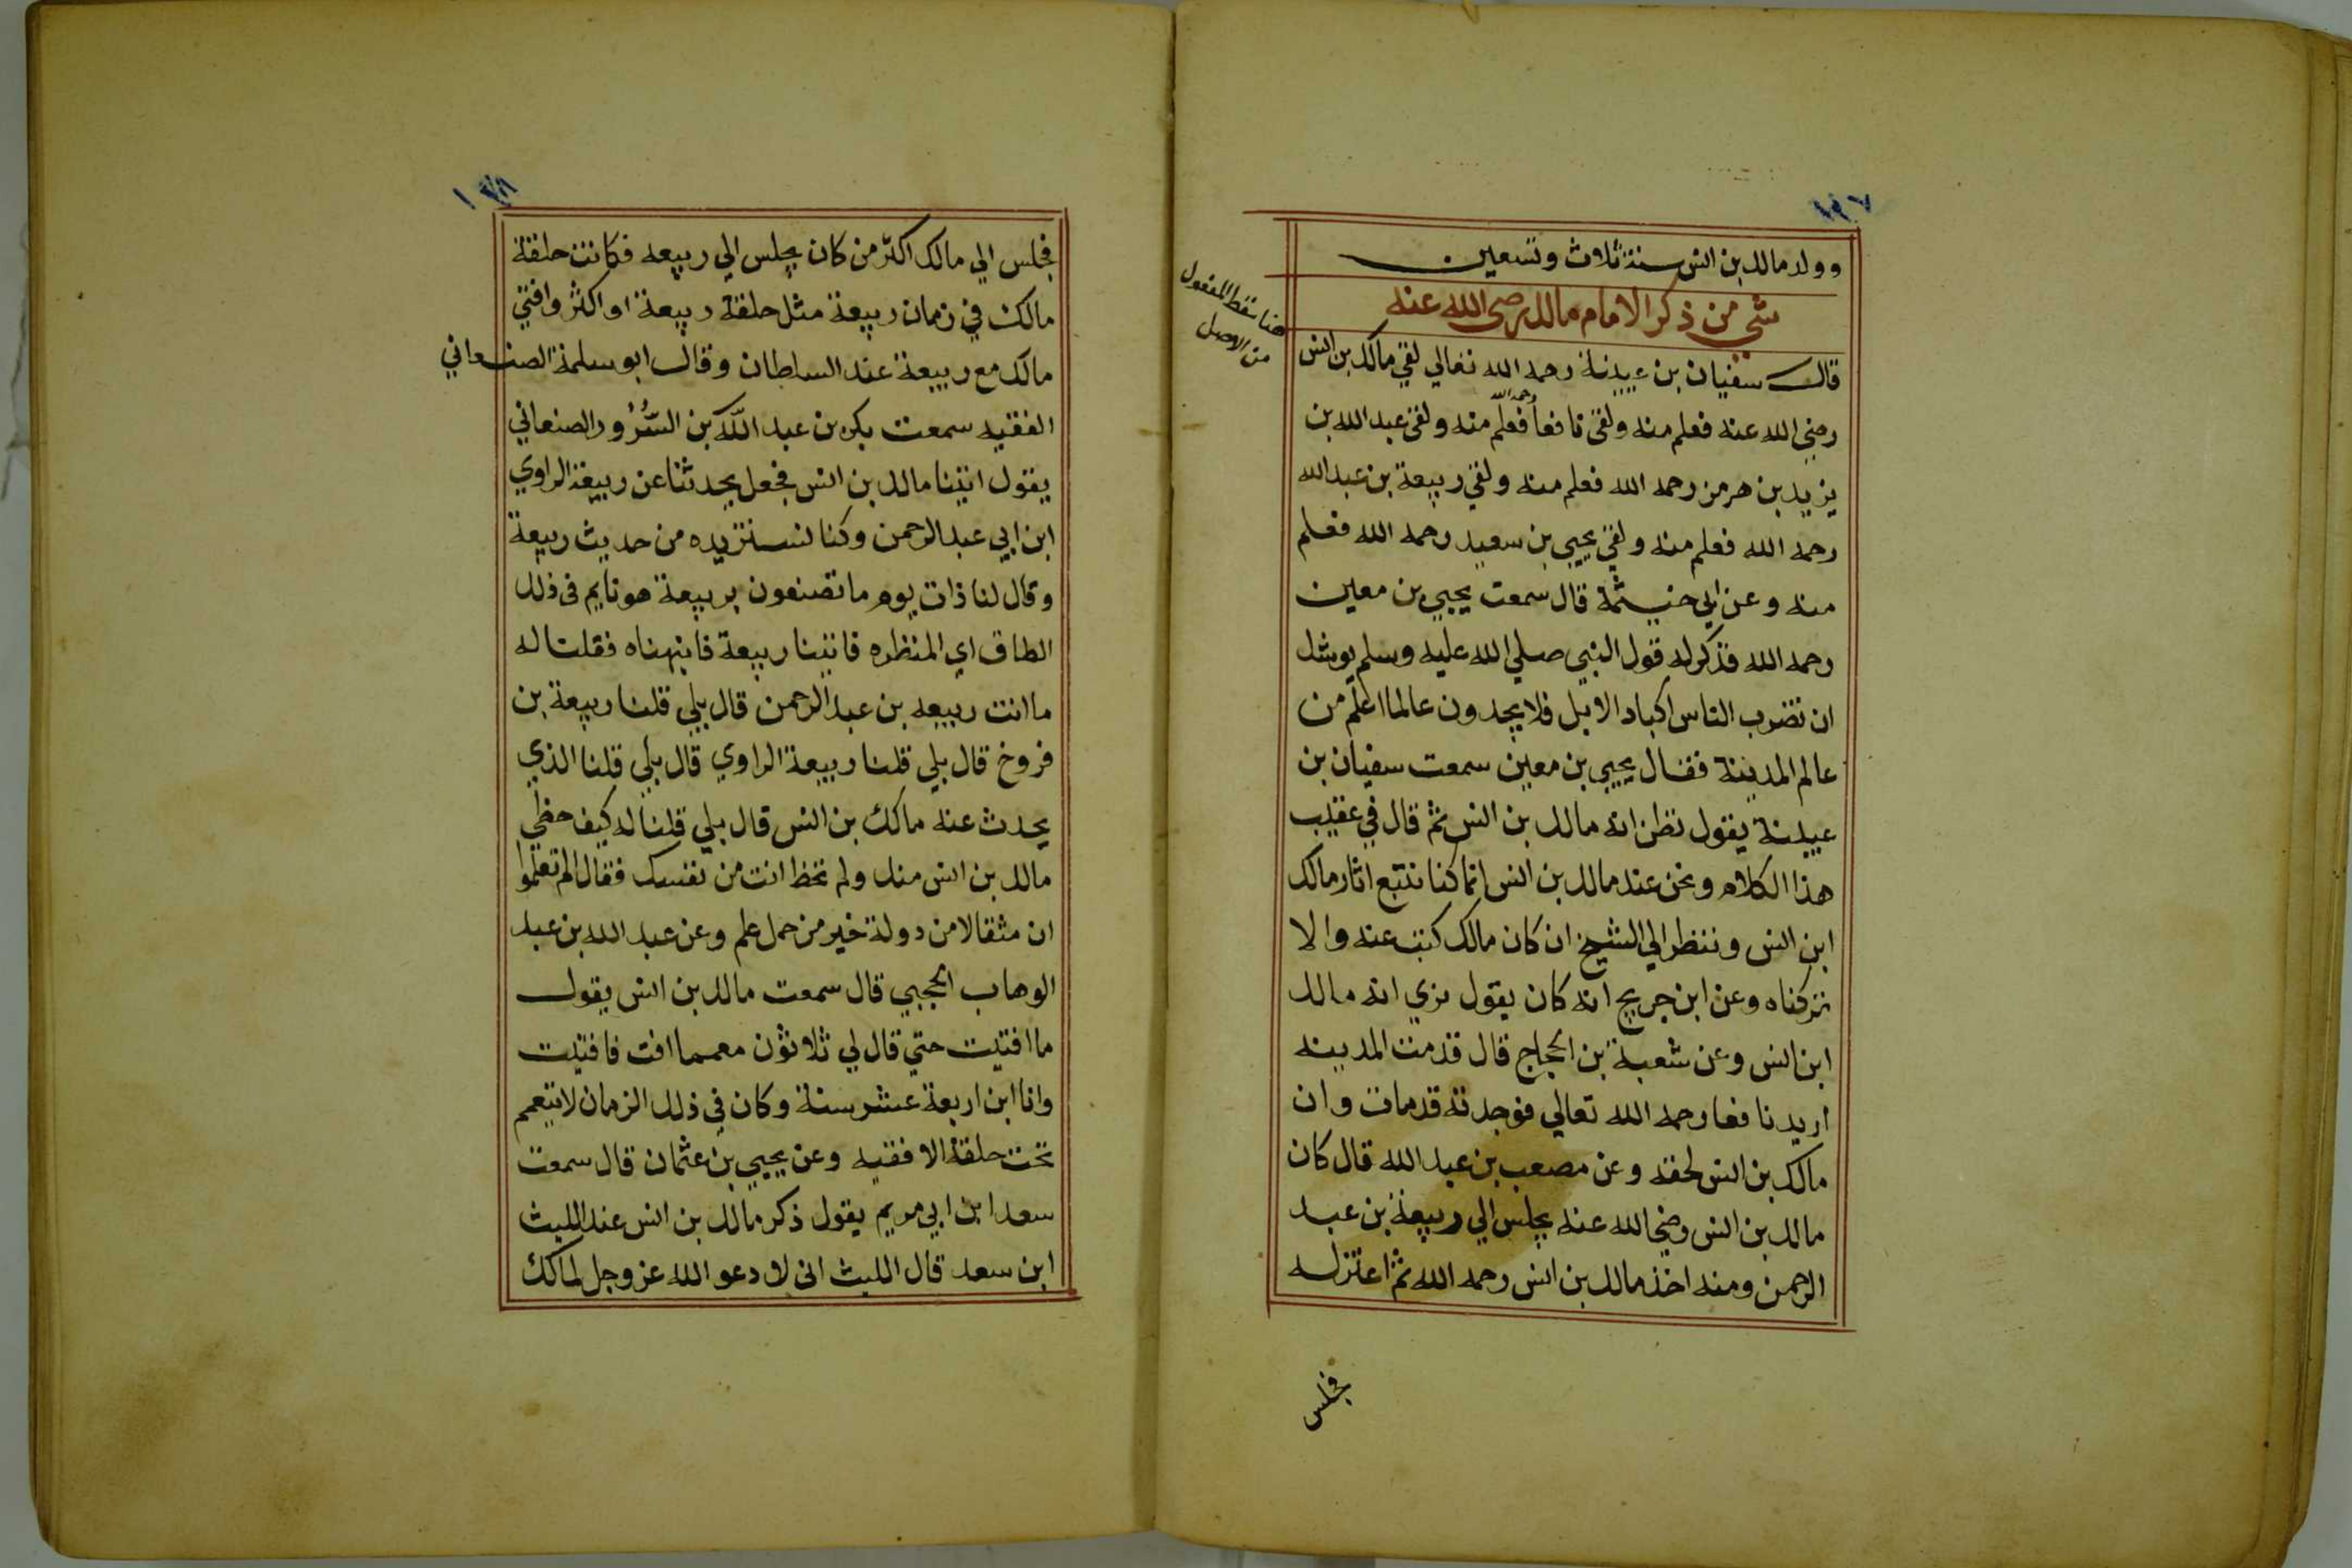 ١٩٧
وولد مالك بن انس سنة ثلاث وتسعين
شي من ذكر الامام مالك رضي الله عنه
هنا سقط المنقول
من الاصل
قال سفيان بن عيينة رحمه الله تعالي لقي مالك بن انس
رضي الله عنه فعلم منه ولقي نافعا رحمه الله فعلم منه ولقي عبد الله بن
يزيد بن هرمز رحمه الله فعلم منه ولقي ربيعة بن عبد الله
رحمه الله فعلم منه ولقي يحيي بن سعيد رحمه الله فعلم
منه وعن ابي خيثمة قال سمعت يحيي بن معين
رحمه الله فذكر له قول النبي صلي الله عليه وسلم يوشك
ان تضرب الناس اكباد الابل فلا يجدون عالما اعلم من
عالم المدينة فقال يحيي بن معين سمعت سفيان بن
عيينة يقول نظن انه مالك بن انس ثم قال في عقيب
هذا الكلام ونحن عند مالك بن انس انما كنا نتتبع اثار مالك
ابن انس وننظر الي الشيخ ان كان مالك كتب عنه والا
تركناه وعن ابن جريج انه كان يقول نري انه مالك
ابن انس وعن شعبة بن الحجاج قال قدمت المدينه
اريد نافعا رحمه الله تعالي فوجدته قد مات وان
مالك بن انس لحقه وعن مصعب بن عبد الله قال كان
مالك بن انس رضي الله عنه يجلس الي ربيعة بن عبد
الرحمن ومنه اخذ مالك بن انس رحمه الله ثم اعتزله
فجلس
فجلس الي مالك اكثر من كان يجلس الي ربيعه فكانت حلقة
مالك في زمان ربيعة مثل حلقة ربيعة او اكثر وافتي
مالك مع ربيعة عند السلطان وقال ابو سلمة الصنعاني
الفقيه سمعت بكر بن عبد الله بن السرور الصنعاني
يقول اتينا مالك بن انس فجعل يحدثنا عن ربيعة الراوي
ابن ابي عبد الرحمن وكنا نستزيده من حديث ربيعة
وقال لنا ذات يوم ما تصنعون بربيعة هو نايم في ذلك
الطاق اي المنظره فاتينا ربيعة فانبهناه فقلنا له
ما انت ربيعه بن عبد الرحمن قال بلي قلنا ربيعة بن
فروخ قال بلي قلنا ربيعة الراوي قال بلي قلنا الذي
يحدث عنه مالك بن انس قال بلي قلنا له كيف حظي
مالك بن انس منك ولم تحظ انت من نفسك فقال الم تعلموا
ان مثقالا من دولة خير من حمل علم وعن عبد الله بن عبد
الوهاب الحجبي قال سمعت مالك بن انس يقول
ما افتيت حتي قال لي ثلاثون معمما افت فافتيت
وانا ابن اربعة عشر سنة وكان في ذلك الزمان لا يتعمم
تحت حلقة الا فقيه وعن يحيي بن عثمان قال سمعت
سعد ابن ابي مريم يقول ذكر مالك بن انس عند الليث
ابن سعد قال الليث اني لا دعو الله عز وجل لمالك